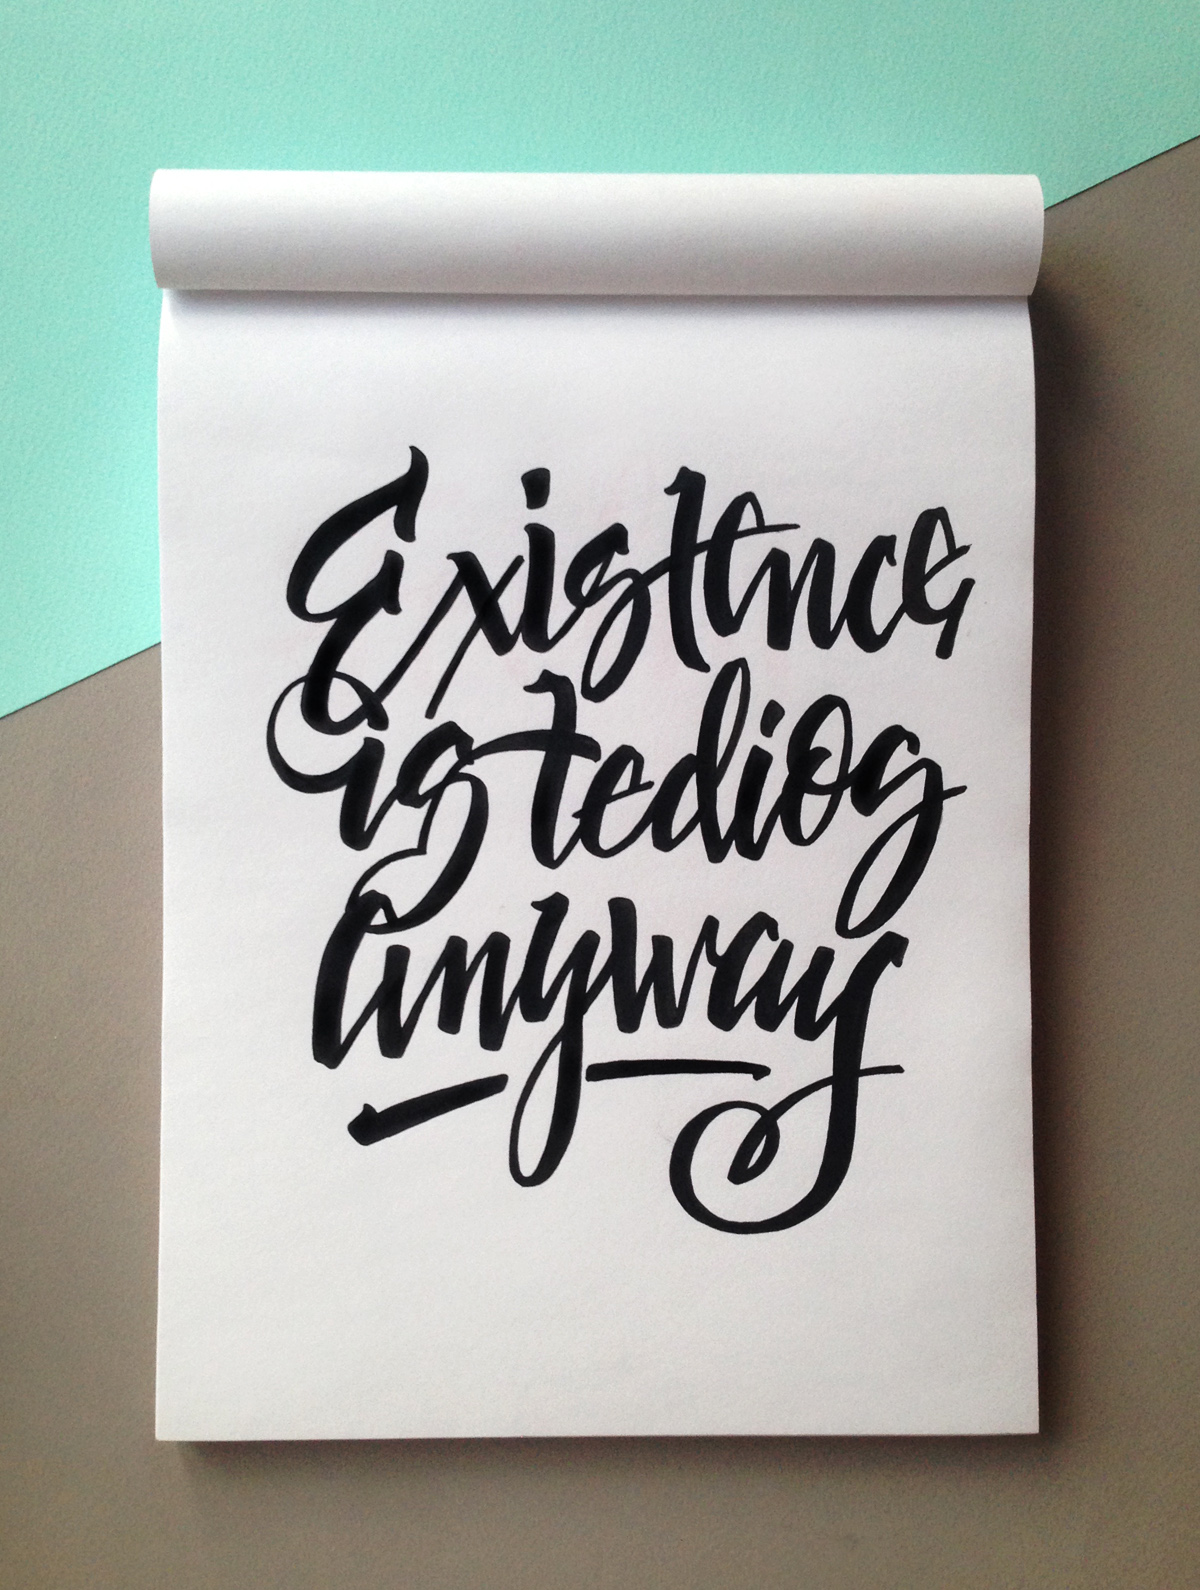 Existence
is tedios
Anyway